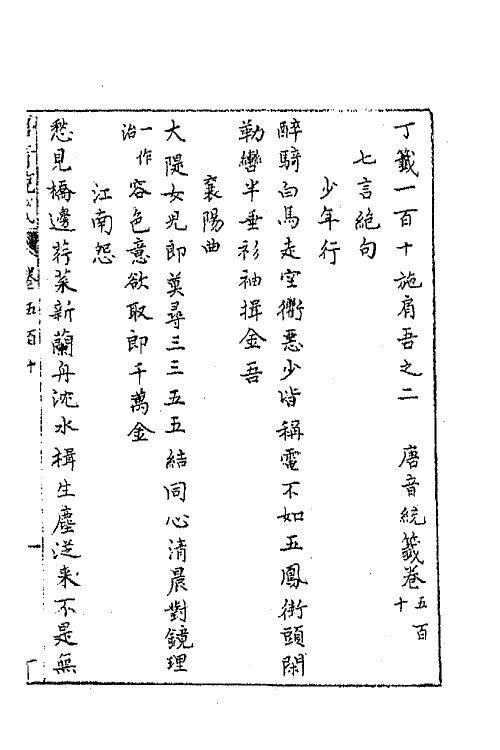 丁籤一百十施肩吾之二　唐音統籤卷五百十
七言絶句
少年行
醉騎白馬走空衢惡少皆稱電不如五鳳街頭閑
勒轡半垂衫袖揖金吾
襄陽曲
大隄女兒郎莫尋三三五五結同心清晨對鏡理
一作冶容色意欲取郎千萬金
江南怨
愁見橋邊荇菜新蘭舟沈水楫生塵從來不是無
卷五百十　一